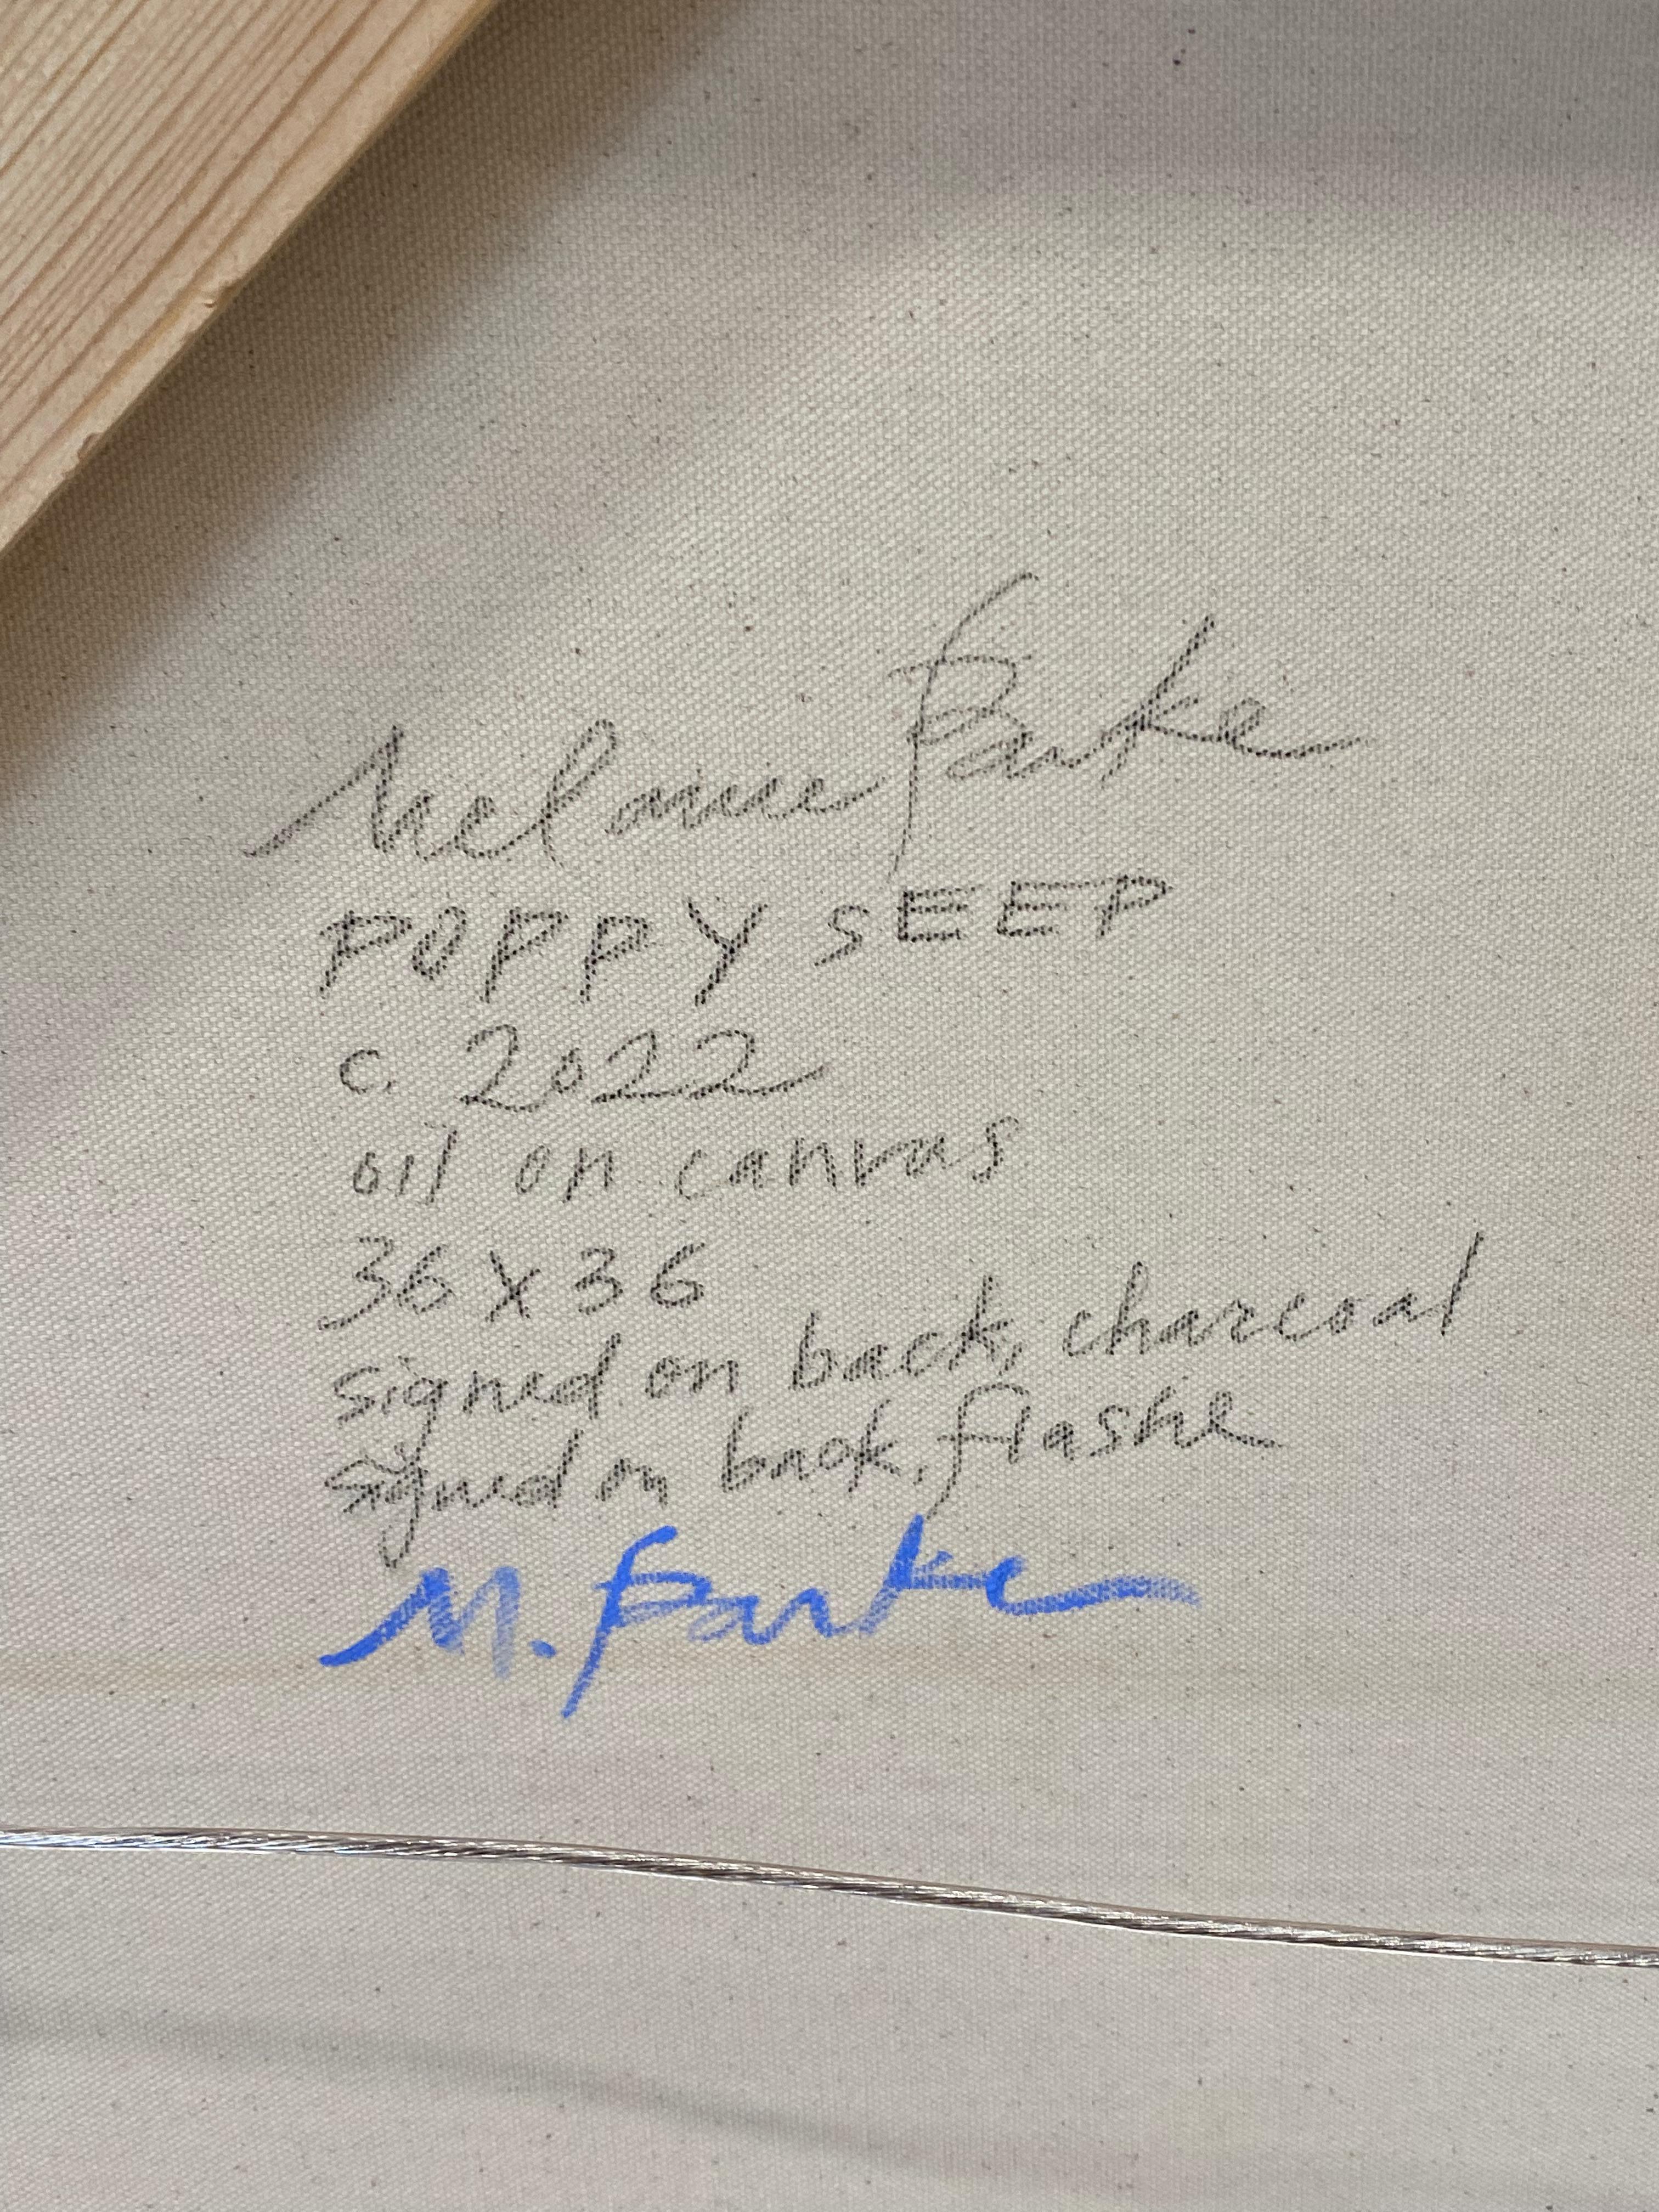 Melanie Parke
POPPY SEEP
c. 2022
oil on canvas
36 x 36
signed on back, charcoal
signed on back, flashe
M. Parke